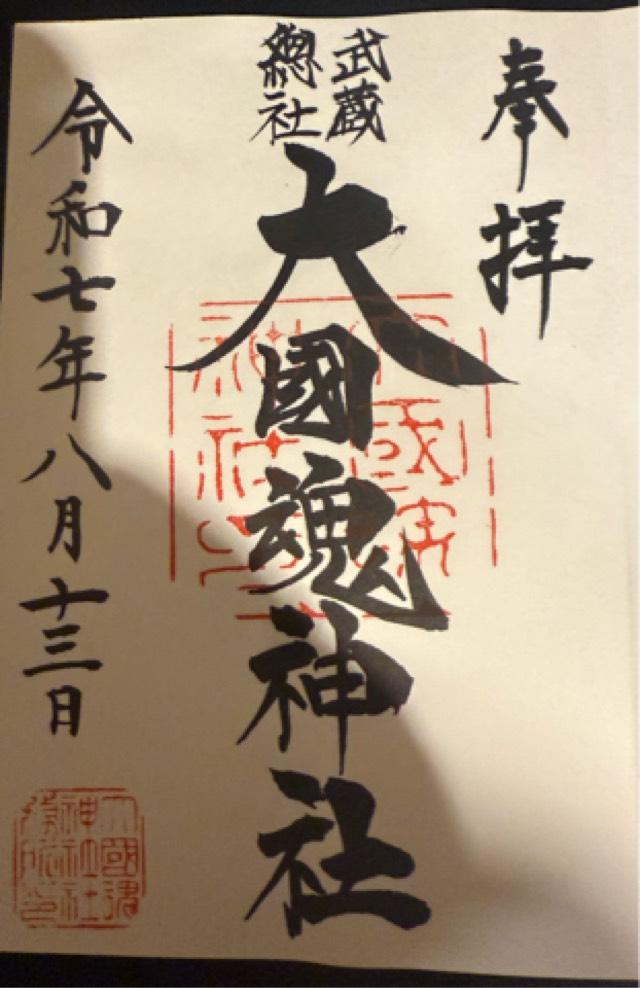 奉拝
武蔵
總社
大國魂神社
令和七年八月十三日
大國魂
神社社
務所印